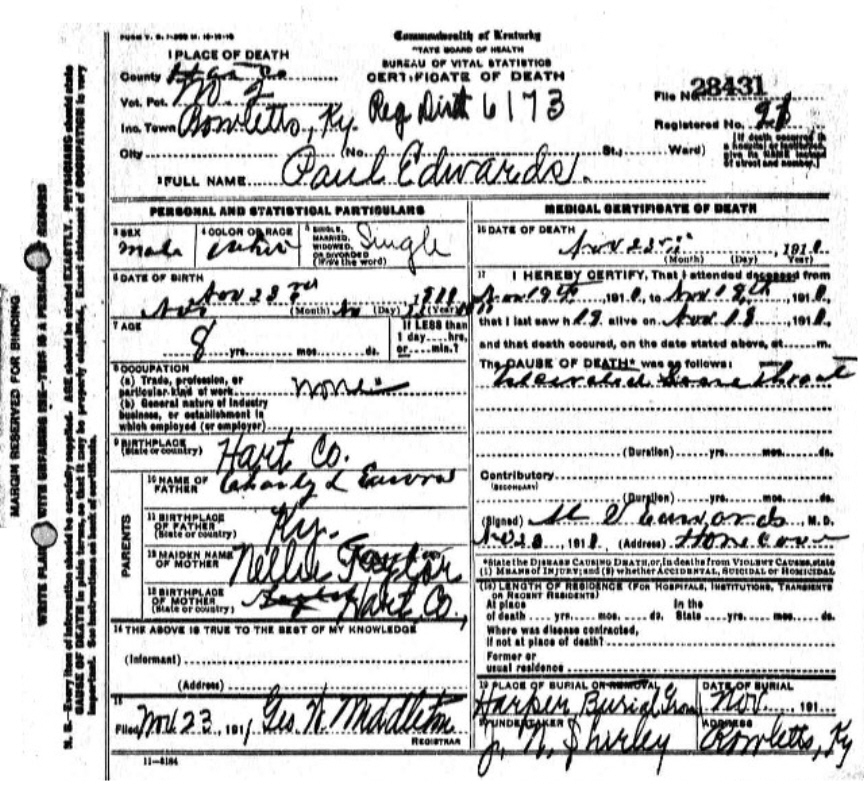 FORM V. S. 1-
Commonwealth of Kentucky
STATE BOARD OF HEALTH
BUREAU OF VITAL STATISTICS
CERTIFICATE OF DEATH
1 PLACE OF DEATH
County
Vot. Pct.
Inc. Town Rowletts, Ky. Reg Dist 6173
City (No. St.; Ward)
File No. 28431
Registered No.
[If death occurred in a hospital or institution, give its NAME instead of street and number.]
2 FULL NAME Paul Edwards.
PERSONAL AND STATISTICAL PARTICULARS
3 SEX Male
4 COLOR OR RACE White
5 SINGLE, MARRIED, WIDOWED, OR DIVORCED (Write the word) Single
6 DATE OF BIRTH
Nov 23rd
(Month) (Day) (Year)
7 AGE 8 yrs. mos. ds.
If LESS than 1 day hrs. or min.?
8 OCCUPATION
(a) Trade, profession, or particular kind of work none
(b) General nature of industry business, or establishment in which employed (or employer)
9 BIRTHPLACE (State or country) Hart Co.
PARENTS
10 NAME OF FATHER
11 BIRTHPLACE OF FATHER (State or country) Ky.
12 MAIDEN NAME OF MOTHER Nellie Taylor
13 BIRTHPLACE OF MOTHER (State or country) Hart Co,
14 THE ABOVE IS TRUE TO THE BEST OF MY KNOWLEDGE
(Informant)
(Address)
15
Filed Nov. 23, 191 Geo. N. Middleton
REGISTRAR
11-3184
MEDICAL CERTIFICATE OF DEATH
16 DATE OF DEATH
Nov 23 191
(Month) (Day) Year)
17 I HEREBY CERTIFY, That I attended deceased from
191 , to Nov 18th, 191
that I last saw h alive on Nov 18, 191
and that death occured, on the date stated above, at m.
The CAUSE OF DEATH* was as follows:
Ulcerated Sore Throat
(Duration) yrs. mos. ds.
Contributory
(SECONDARY)
(Duration) yrs. mos. ds.
(Signed) Edwards M. D.
191 (Address)
*State the DISEASE CAUSING DEATH, or, in deaths from VIOLENT CAUSES, state (1) MEANS OF INJURY; and (2) whether ACCIDENTAL, SUICIDAL OR HOMICIDAL
18 LENGTH OF RESIDENCE (FOR HOSPITALS, INSTITUTIONS, TRANSIENTS OR RECENT RESIDENTS)
At place of death yrs. mos. ds. In the State yrs. mos. ds.
Where was disease contracted, if not at place of death?
Former or usual residence
19 PLACE OF BURIAL OR REMOVAL
Harper Burial
DATE OF BURIAL
Nov. 191
20 UNDERTAKER
J. N. Shirley
ADDRESS
Rowletts, Ky
MARGIN RESERVED FOR BINDING
N. B.—Every item of information should be carefully supplied. AGE should be stated EXACTLY. PHYSICIANS should state CAUSE OF DEATH in plain terms, so that it may be properly classified. Exact statement of OCCUPATION is very important. See instructions on back of certificate.